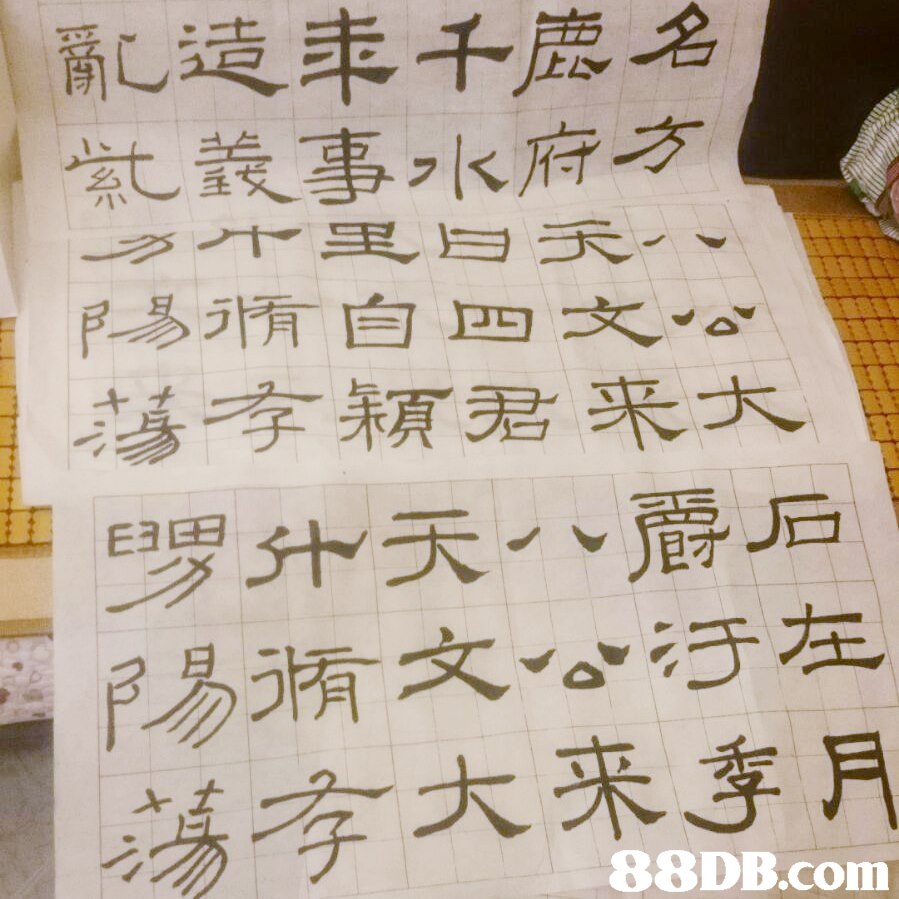 亂造来千鹿名
紫義事水府方
里日天八
陽脩自四文公
蕩孝穎君来大
舅什天八爵后
陽脩文公汙在
蕩孝大来季月
88DB.com